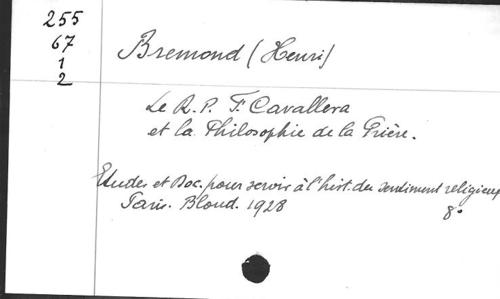 255
67
1
2
Bremond (Henri)
Le R. P. F. Cavallera
et la Philosophie de la Prière.
Etudes et Doc. pour servir à l'hist. du sentiment religieux
Paris. Bloud. 1928 8°